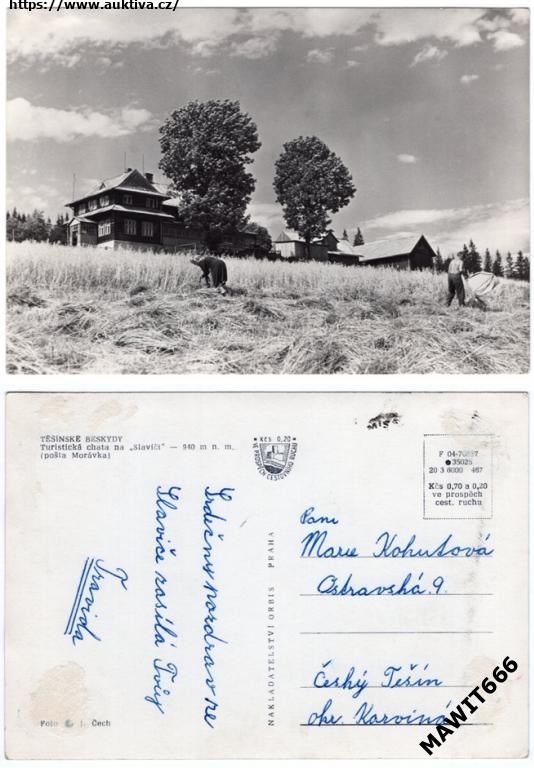 https://www.auktiva.cz/
TĚŠÍNSKÉ BESKYDY
Turistická chata na „Slavíči" — 940 m n. m.
(pošta Morávka)
Kčs 0,20
VE PROSPĚCH CESTOVNÍHO RUCHU
F 04-70837
35025
20 3 6000 487
Kčs 0,70 a 0,20
ve prospěch
cest. ruchu
Srdečný pozdrav ze
Slavíče zasílá Tvůj
Fravida
NAKLADATELSTVÍ ORBIS PRAHA
Paní
Marie Kohutová
Ostravská 9.
Český Těšín
okr. Karviná
Foto J. Čech
MAWIT666